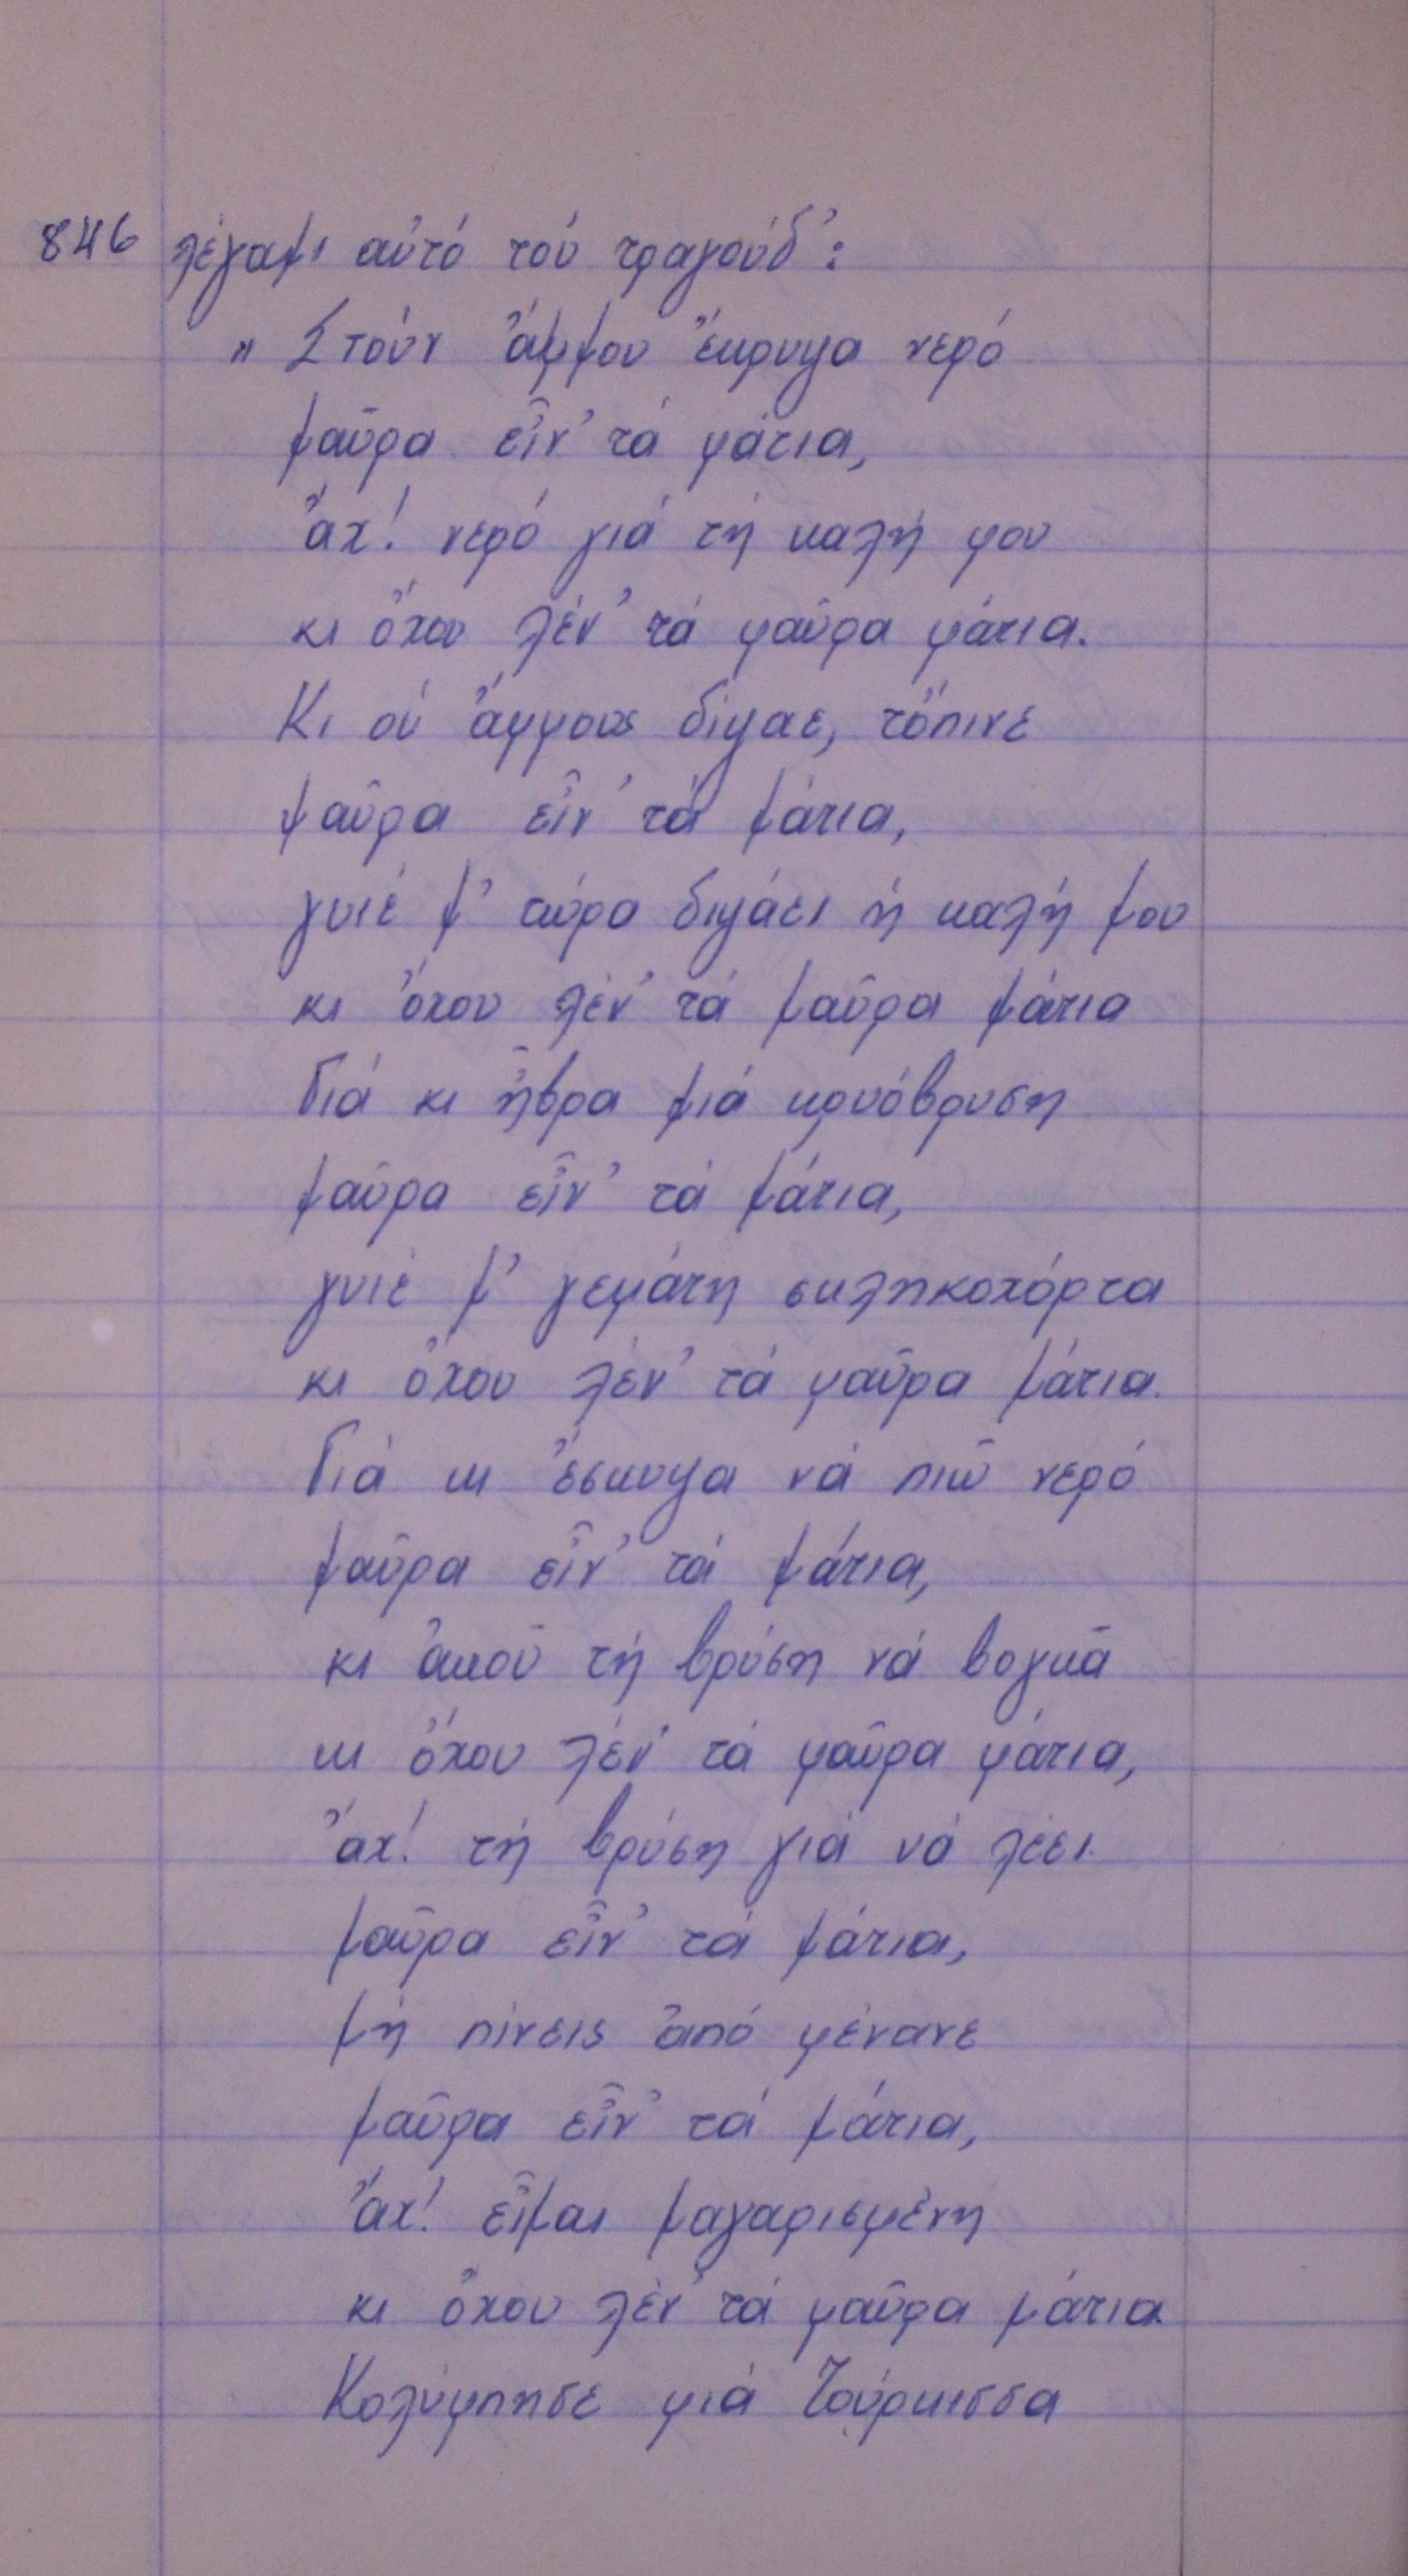 846 λέγαμι αὐτό τού τραγούδ':
" Στούν ἄμμου ἔκρυψα νερό
μαῦρα εἶν' τά μάτια,
ἄχ! νερό γιά τή καλή μου
κι ὄχου λέν' τά μαῦρα μάτια.
Κι οὑ ἄμμους δίψαε, τὄπινε
μαῦρα εἶν' τά μάτια,
γυιέ μ' τώρα διψάει ἡ καλή μου
κι ὄχου λέν' τά μαῦρα μάτια
Γιά κι ἦβρα μιά κρυόβρυση
μαῦρα εἶν' τά μάτια,
γυιέ μ' γεμάτη σκληκοχόρτα
κι ὄχου λέν' τά μαῦρα μάτια.
Γιά κι ἔσκυψα νά πιῶ νερό
μαῦρα εἶν' τά μάτια,
κι ἀκοῦ τή βρύση νά βογκᾶ
κι ὄχου λέν' τά μαῦρα μάτια,
ἄχ! τή βρύση γιά νά λέει
μαῦρα εἶν' τά μάτια,
μή πίνεις ἀπό μένανε
μαῦρα εἶν' τά μάτια,
ἄχ! εἶμαι μαγαρισμένη
κι ὄχου λέν' τά μαῦρα μάτια
Κολύμπησε μιά Τούρκισσα